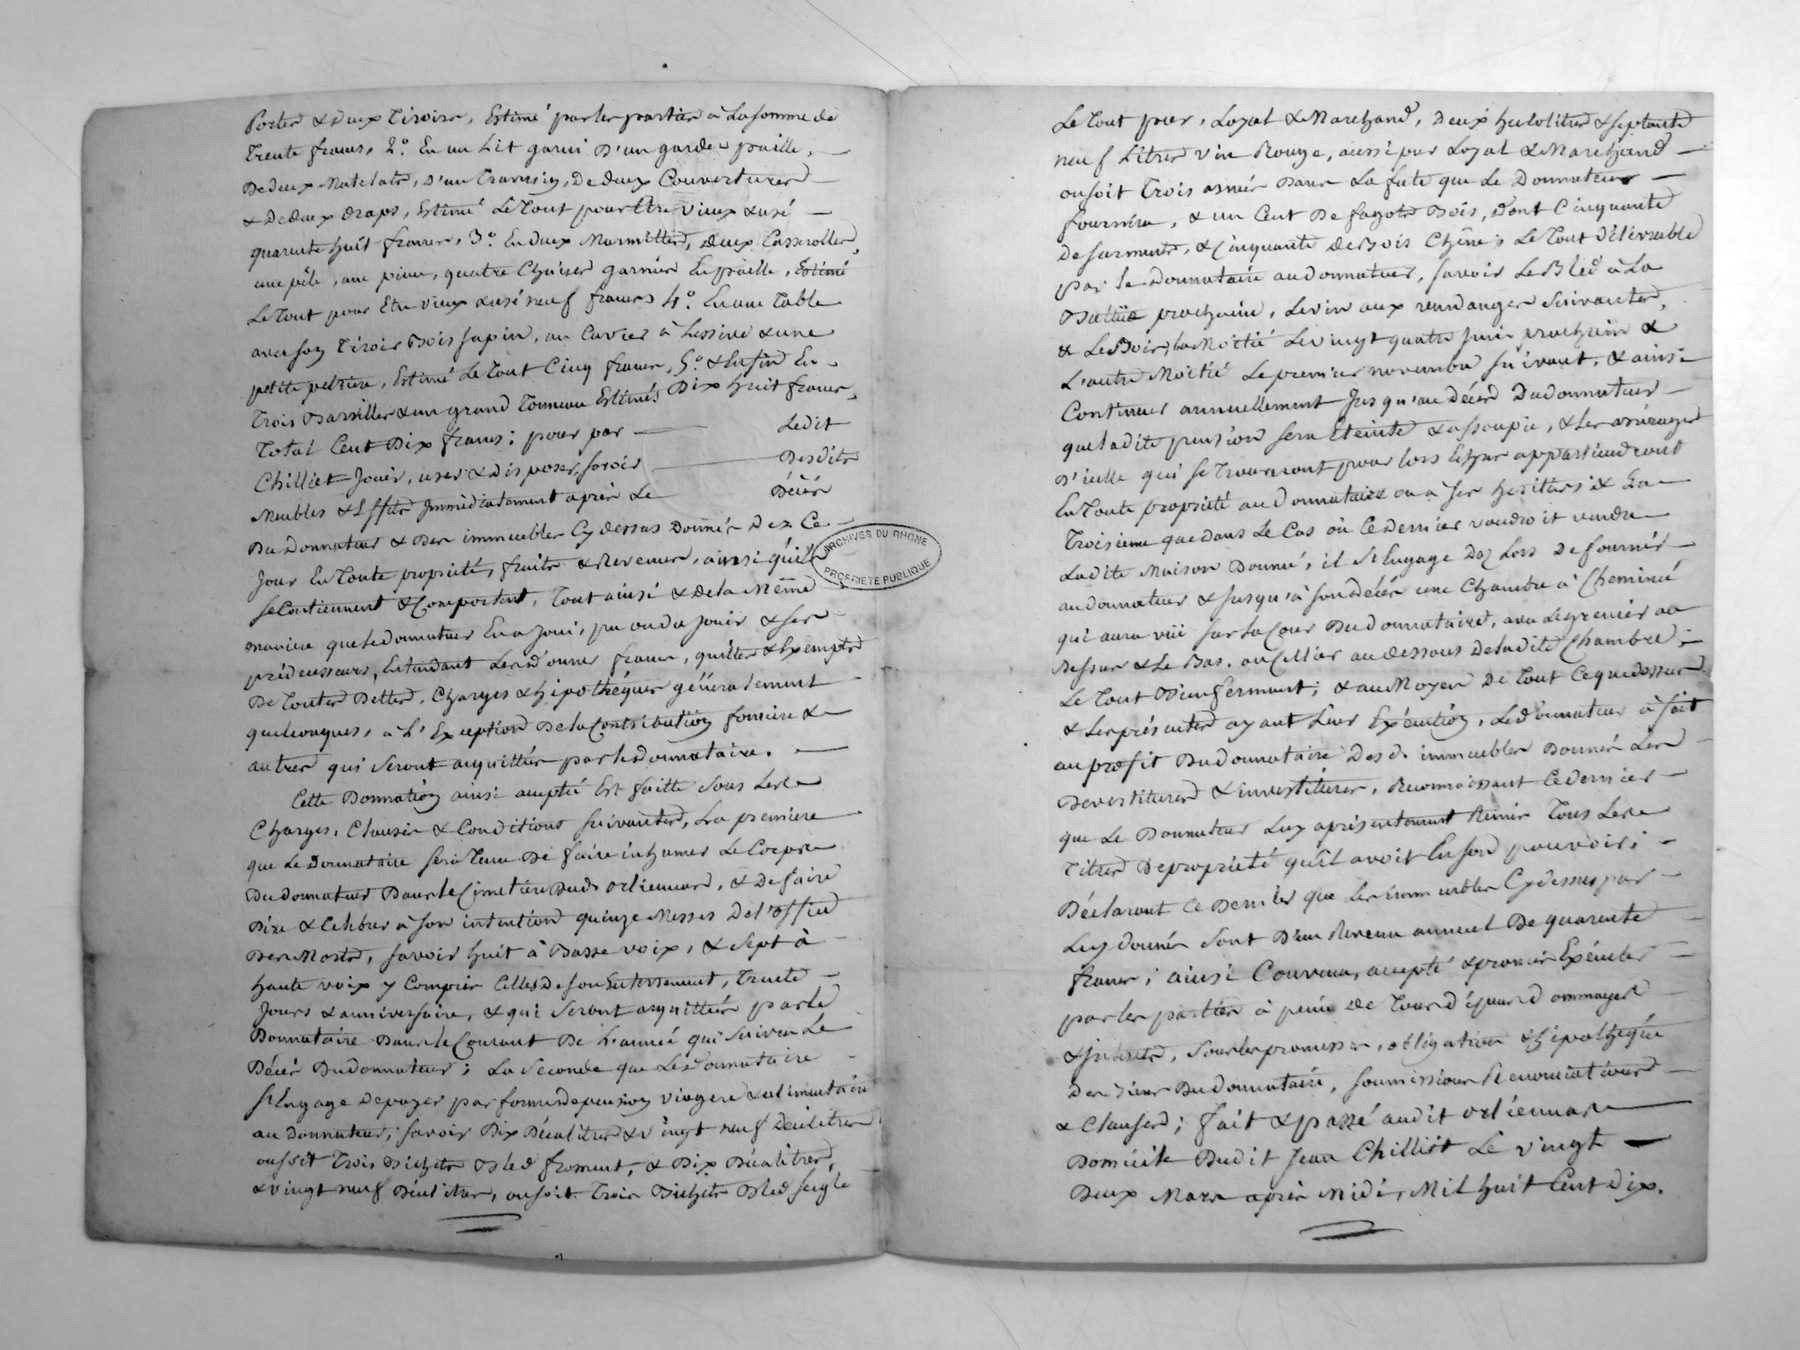 Portes & Deux Tiroirs, Estimé par les parties à La somme de
Trente francs, 2.o En un Lit garni D'un garde-paille,
De deux Matelats, D'un Traversin, De deux Couvertures
& De deux draps, Estimé Le Tout pour Etre vieux & usé
quarente huit francs, 3.o En deux Marmittes, deux Casserolles,
une pêle, une , quatre Chaises garnies En paille, Estimé
Le Tout pour Etre vieux & usé neuf francs 4.o En une Table
avec son Tiroir Bois sapin, un Cuvier à Lessive & une
petite petrière, Estimé Le Tout Cinq francs, 5.o & Enfin En
Trois Barrilles & un grand Tonneau Estimés Dix huit francs,
Total Cent Dix francs; pour par Ledit
Chilliet Jouir, user & disposer, savoir Desdits
Meubles & Effets Immédiatement après Le Décès
Du Donnateur & Des immeubles Cy dessus Donnés Dez Ce
Jour En Toute propriété, fruits & Revenus, ainsi qu'ils
se Contiennent & Comportent, Tout ainsi & De la Même
manière que le donnateur En a Joui, pu ou du Jouir & ses
prédécesseurs, Entendant Les Donner francs, quittes & Exempts
De Toutes Dettes, Charges & hipothéques généralement
quelconques, à L'Exception De la Contribution foncière &
autres qui seront acquittés par le Donnataire.
Cette Donnation ainsi acceptée Est faitte sous Les
Charges, Clauses & Conditions suivantes, La première
que Le Donnataire sera Tenu De faire inhumer Le Corps
Du donnateur Dans le Cimetière Dud. orliennard, & De faire
Dire & Celebrer à son intention quinze Messes De l'office
Des Morts, savoir huit à Basse voix, & sept à
haute voix y Compris Celles De son Enterrement, Trente
Jours & anniversaire, & qui seront acquittés par Le
Donnataire Dans le Courant De L'année qui suivra Le
Décès Du donnateur; La seconde que Le Donnataire
s'Engage De payer par forme de pension viagere & alimentaire
au donnateur; savoir Dix Décalitres & vingt neuf Décilitres
ou soit Trois Bichets Bled froment, & Dix Décalitres,
& vingt neuf Décilitres, ou soit Trois Bichets Bled seigle
Le Tout pur, Loyal & Marchand, Deux hectolitres & septante
neuf Litres vin Rouge, aussi pur Loyal & Marchand
ou soit Trois asnées Dans La futte que Le Donnateur
fournira, & un Cent De fagots Bois, Dont Cinquante
de sarments, & Cinquante De Bois Chêne; Le Tout Délivrable
par le Donnataire au Donnateur, savoir Le Bled à La
 prochaine, Le vin aux vendanges suivantes,
& Le Bois, la Moitié Le vingt quatre Juin prochain &
L'autre Moitié Le premier novembre suivant, & ainsi
Continuer annuellement Jusqu'au Décès Du donnateur
que ladite pension sera Eteinte & assoupie, & Les arrérages
D'icelle qui se Trouveront pour lors Echus appartiendront
En Toute propriété au Donnataire ou à ses heritiers; & La
Troisieme que dans Le Cas où Ce dernier voudroit vendre
Ladite Maison Donnée, il s'Engage Dez Lors De fournir
au donnateur & Jusqu'à son Décès une Chambre à Cheminée
qui aura vüe sur la Cour Du donnataire, avec Le grenier au
Dessus & Le Bas ou Cellier au dessous De ladite Chambre;
Le Tout D'un ferment; & au Moyen De Tout Ce que dessus
& Les présentes ayant Leur Exécution, Le donnateur à fait
au profit Du donnataire Desd. immeubles Donnés Les
Devestitures & investitures, Reconnoissant Ce dernier
que Le Donnateur Luy a présentement Remis Tous Les
Titres De propriété qu'il avoit En son pouvoir;
Déclarant Ce Dernier que Les immeubles Cy dessus par
Luy donnés sont D'un Revenu annuel De quarente
francs; ainsi Convenu, accepté & promis Exécuter
par Les parties à peine De Tous dépens Dommages
& Intérêts, sous les promesses, obligation & hipothéque
Des biens Du donnataire, soumissions Renonciations
& Clauses; Fait & passé audit orliennard
Domicile Dudit Jean Chilliet Le vingt
Deux Mars après Midi, Mil huit Cent Dix.
ARCHIVES DU RHONE
PROPRIETE PUBLIQUE